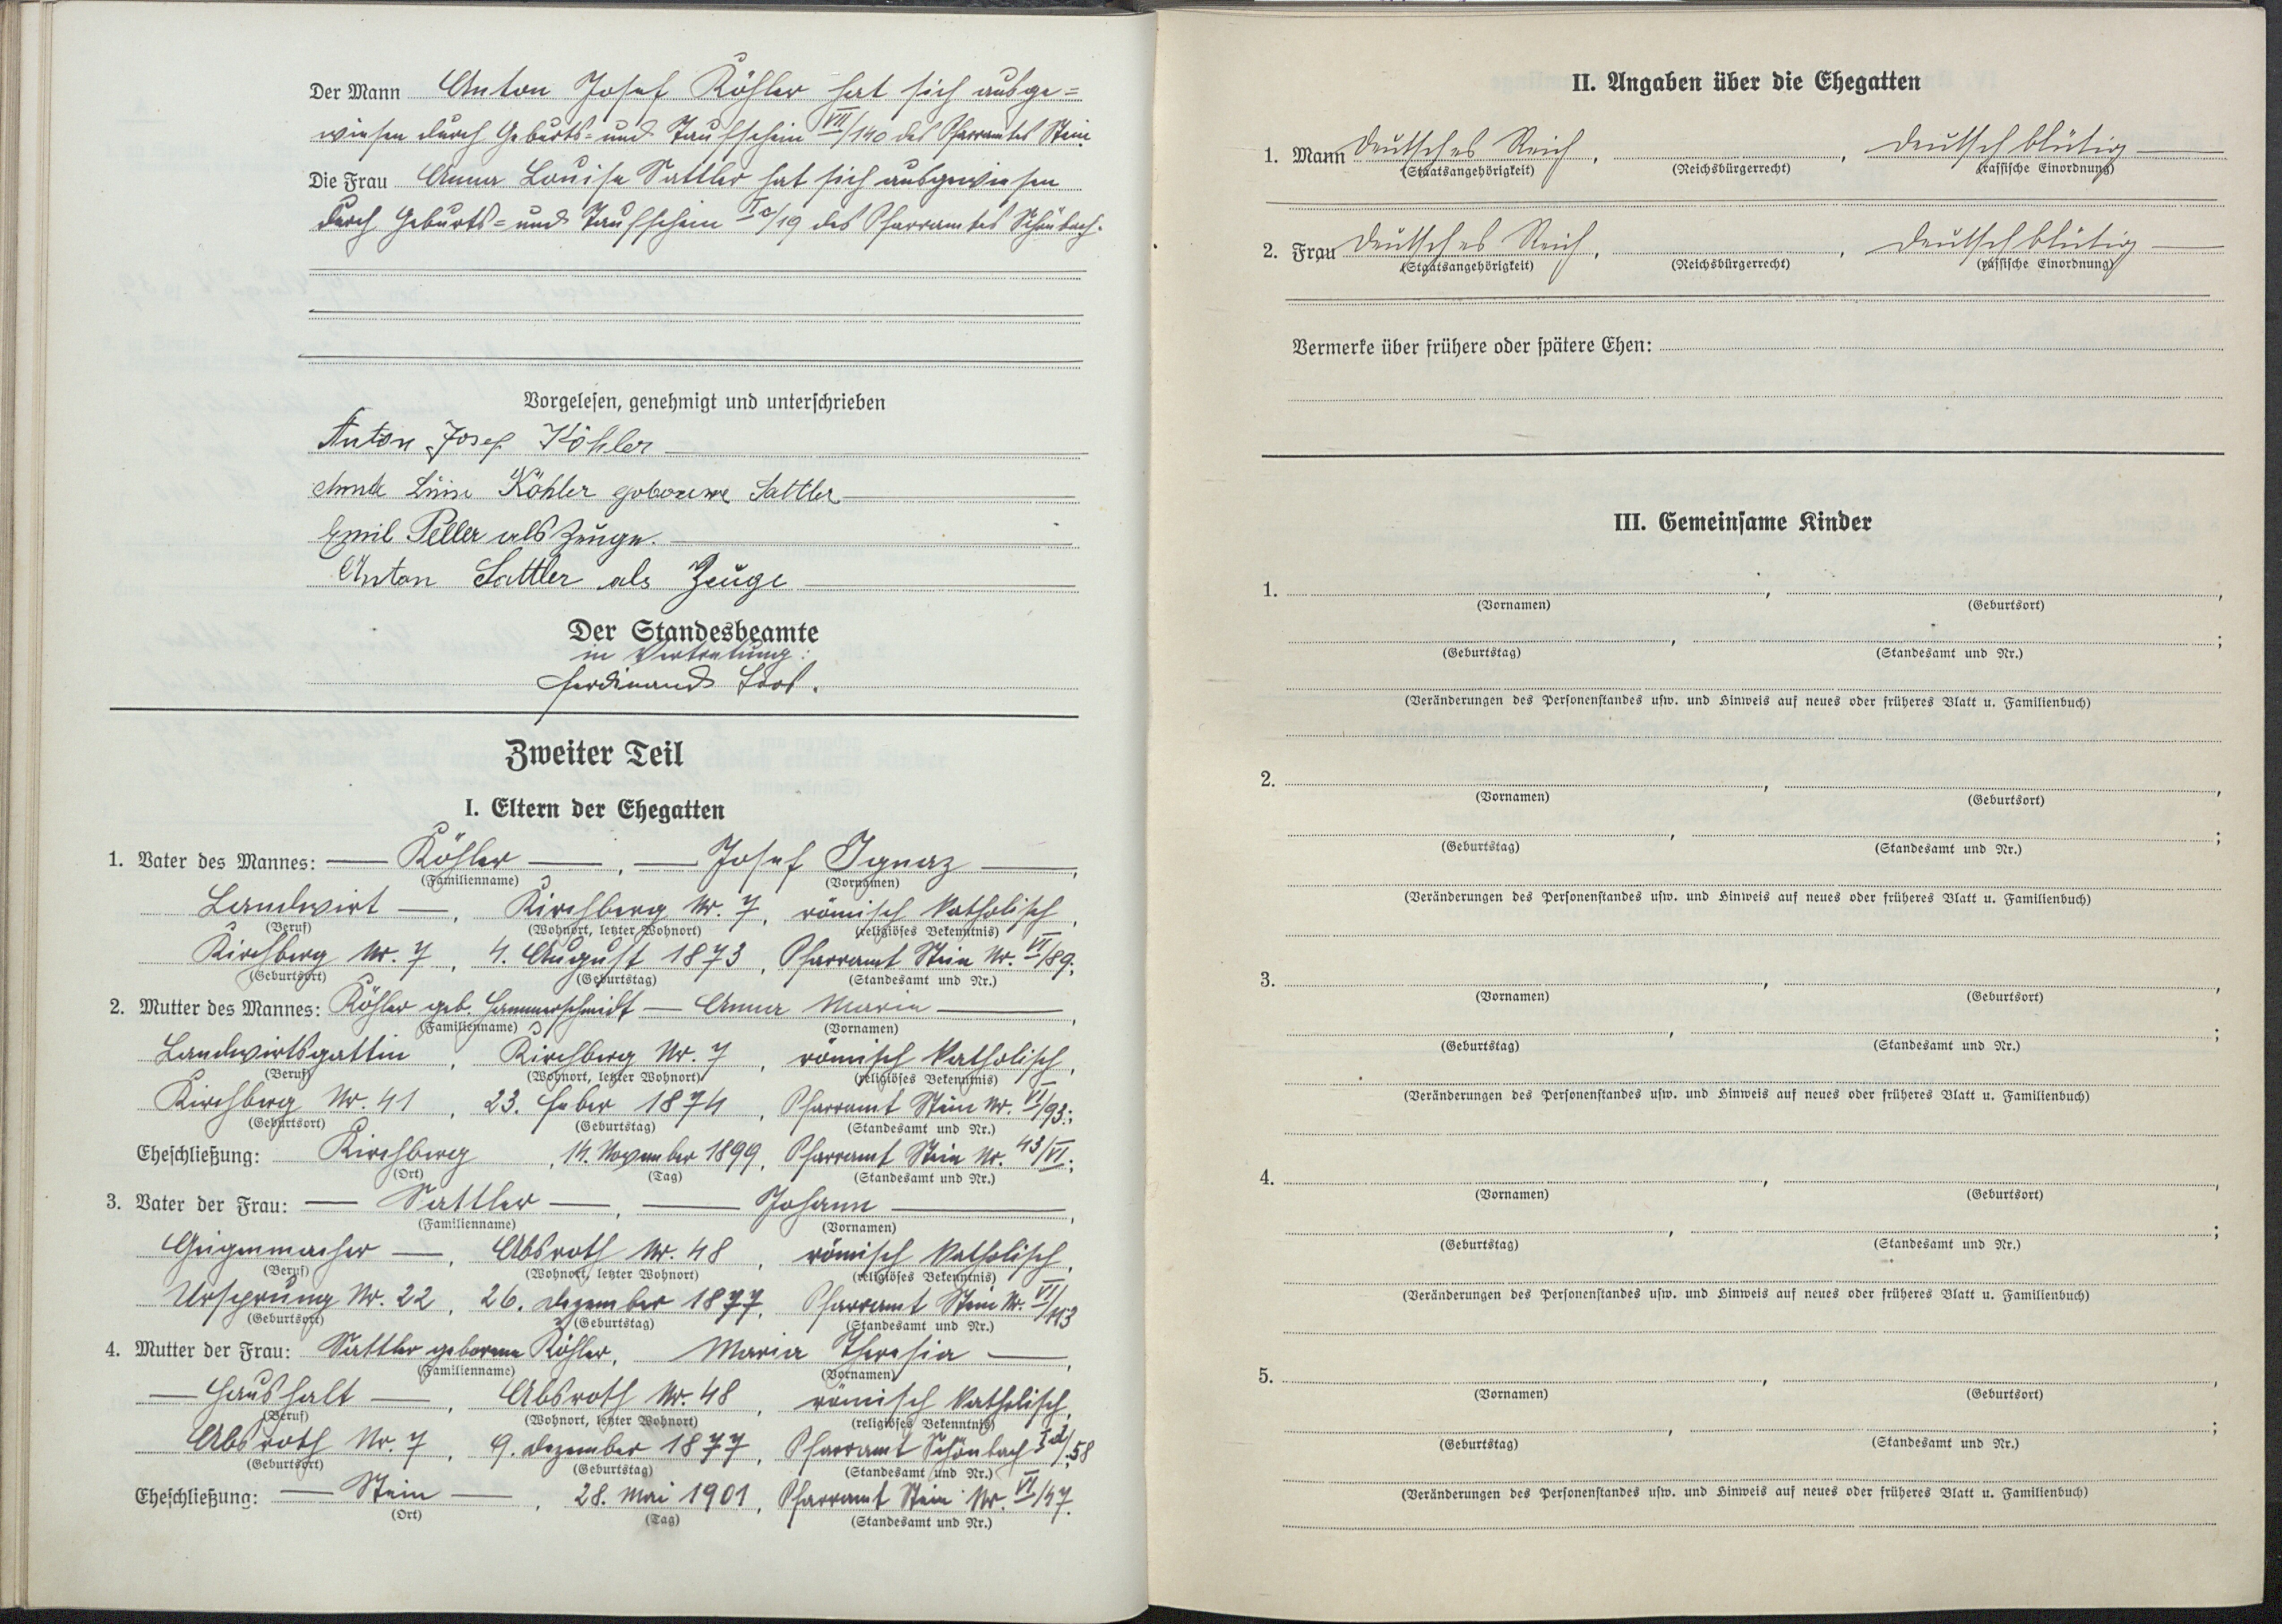 Der Mann Anton Josef Köhler hat sich ausge=
wiesen durch Geburts= und Taufschein VII/140 des Pfarramtes Stein.
Die Frau Anna Louise Sattler hat sich ausgewiesen
durch Geburts= und Taufschein des Pfarramtes Schönbach.
Vorgelesen, genehmigt und unterschrieben
Anton Josef Köhler
Köhler geborene Sattler
Emil Peller als Zeuge.
Anton Sattler als Zeuge
Der Standesbeamte
in Vertretung:
Ferdinand
Zweiter Teil
I. Eltern der Ehegatten
1. Vater des Mannes: Köhler, Josef Ignaz,
(Familienname) (Vornamen)
Landwirt, Kirchberg Nr. 7, römisch katholisch,
(Beruf) (Wohnort, letzter Wohnort) (religiöses Bekenntnis)
Kirchberg Nr. 7, 4. August 1873, Pfarramt Stein Nr. VI/89;
(Geburtsort) (Geburtstag) (Standesamt und Nr.)
2. Mutter des Mannes: Köhler geb. Hammerschmidt — Anna Maria,
(Familienname) (Vornamen)
Landwirtsgattin, Kirchberg Nr. 7, römisch katholisch,
(Beruf) (Wohnort, letzter Wohnort) (religiöses Bekenntnis)
Kirchberg Nr. 41, 23. Feber 1874, Pfarramt Stein Nr. VI/93;
(Geburtsort) (Geburtstag) (Standesamt und Nr.)
Eheschließung: Kirchberg, 14. November 1899, Pfarramt Stein Nr. 43/VI;
(Ort) (Tag) (Standesamt und Nr.)
3. Vater der Frau: Sattler, Johann,
(Familienname) (Vornamen)
Geigenmacher, Absroth Nr. 48, römisch katholisch,
(Beruf) (Wohnort, letzter Wohnort) (religiöses Bekenntnis)
Ursprung Nr. 22, 26. Dezember 1877, Pfarramt Stein Nr. VI/113
(Geburtsort) (Geburtstag) (Standesamt und Nr.)
4. Mutter der Frau: Sattler geborene Köhler, Maria Theresia,
(Familienname) (Vornamen)
Haushalt, Absroth Nr. 48, römisch katholisch,
(Beruf) (Wohnort, letzter Wohnort) (religiöses Bekenntnis)
Absroth Nr. 7, 9. Dezember 1877, Pfarramt Schönbach
(Geburtsort) (Geburtstag) (Standesamt und Nr.)
Eheschließung: Stein, 28. Mai 1901, Pfarramt Stein Nr. VI/47.
(Ort) (Tag) (Standesamt und Nr.)
II. Angaben über die Ehegatten
1. Mann Deutsches Reich, , deutschblütig
(Staatsangehörigkeit) (Reichsbürgerrecht) (rassische Einordnung)
2. Frau Deutsches Reich, , deutschblütig
(Staatsangehörigkeit) (Reichsbürgerrecht) (rassische Einordnung)
Vermerke über frühere oder spätere Ehen:
III. Gemeinsame Kinder
1. , ,
(Vornamen) (Geburtsort)
, ;
(Geburtstag) (Standesamt und Nr.)
(Veränderungen des Personenstandes usw. und Hinweis auf neues oder früheres Blatt u. Familienbuch)
2. , ,
(Vornamen) (Geburtsort)
, ;
(Geburtstag) (Standesamt und Nr.)
(Veränderungen des Personenstandes usw. und Hinweis auf neues oder früheres Blatt u. Familienbuch)
3. , ,
(Vornamen) (Geburtsort)
, ;
(Geburtstag) (Standesamt und Nr.)
(Veränderungen des Personenstandes usw. und Hinweis auf neues oder früheres Blatt u. Familienbuch)
4. , ,
(Vornamen) (Geburtsort)
, ;
(Geburtstag) (Standesamt und Nr.)
(Veränderungen des Personenstandes usw. und Hinweis auf neues oder früheres Blatt u. Familienbuch)
5. , ,
(Vornamen) (Geburtsort)
, ;
(Geburtstag) (Standesamt und Nr.)
(Veränderungen des Personenstandes usw. und Hinweis auf neues oder früheres Blatt u. Familienbuch)